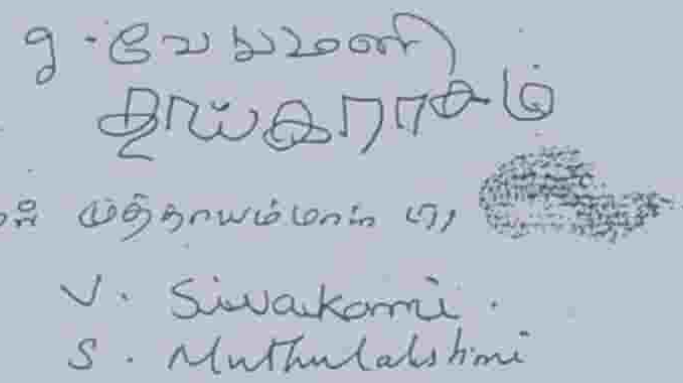 g. வேலுமணி
தியாகராசம்
முத்தாயம்மாள்
V. Sivakami.
S. Muthulakshmi